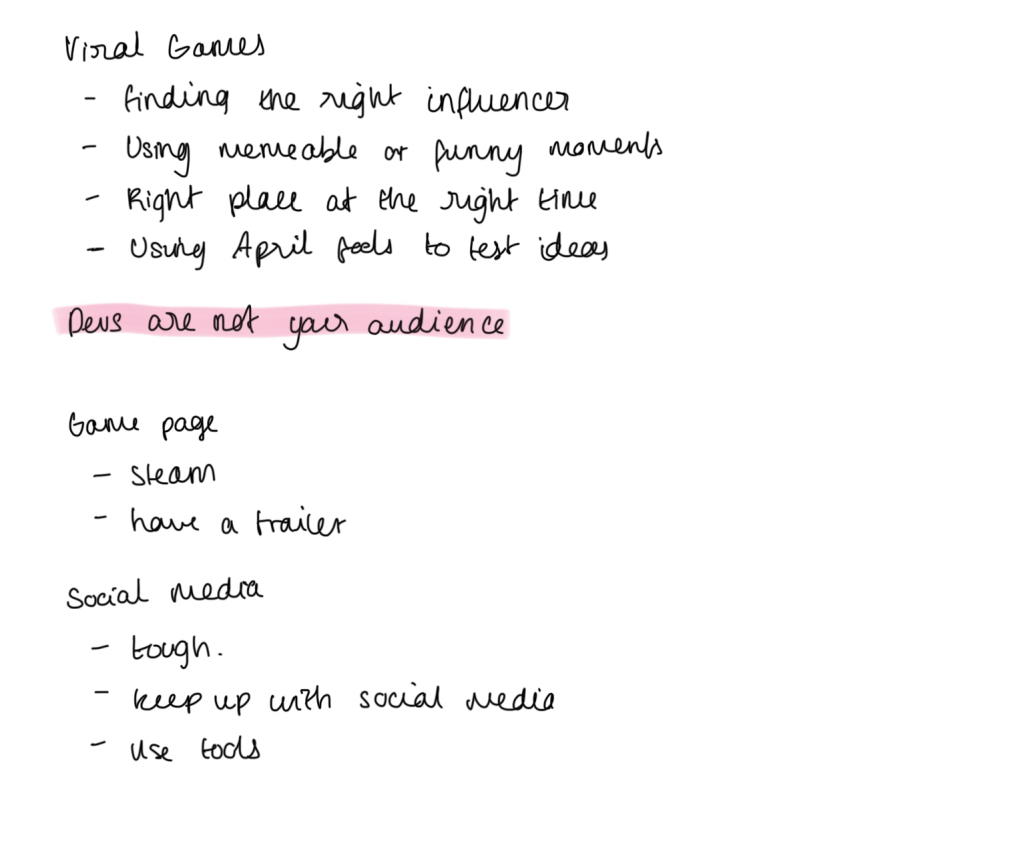 Viral Games
- finding the right influencer
- Using memeable or funny moments
- Right place at the right time
- Using April fools to test ideas
Devs are not your audience
Game page
- Steam
- have a trailer
Social media
- tough.
- keep up with social media
- use tools